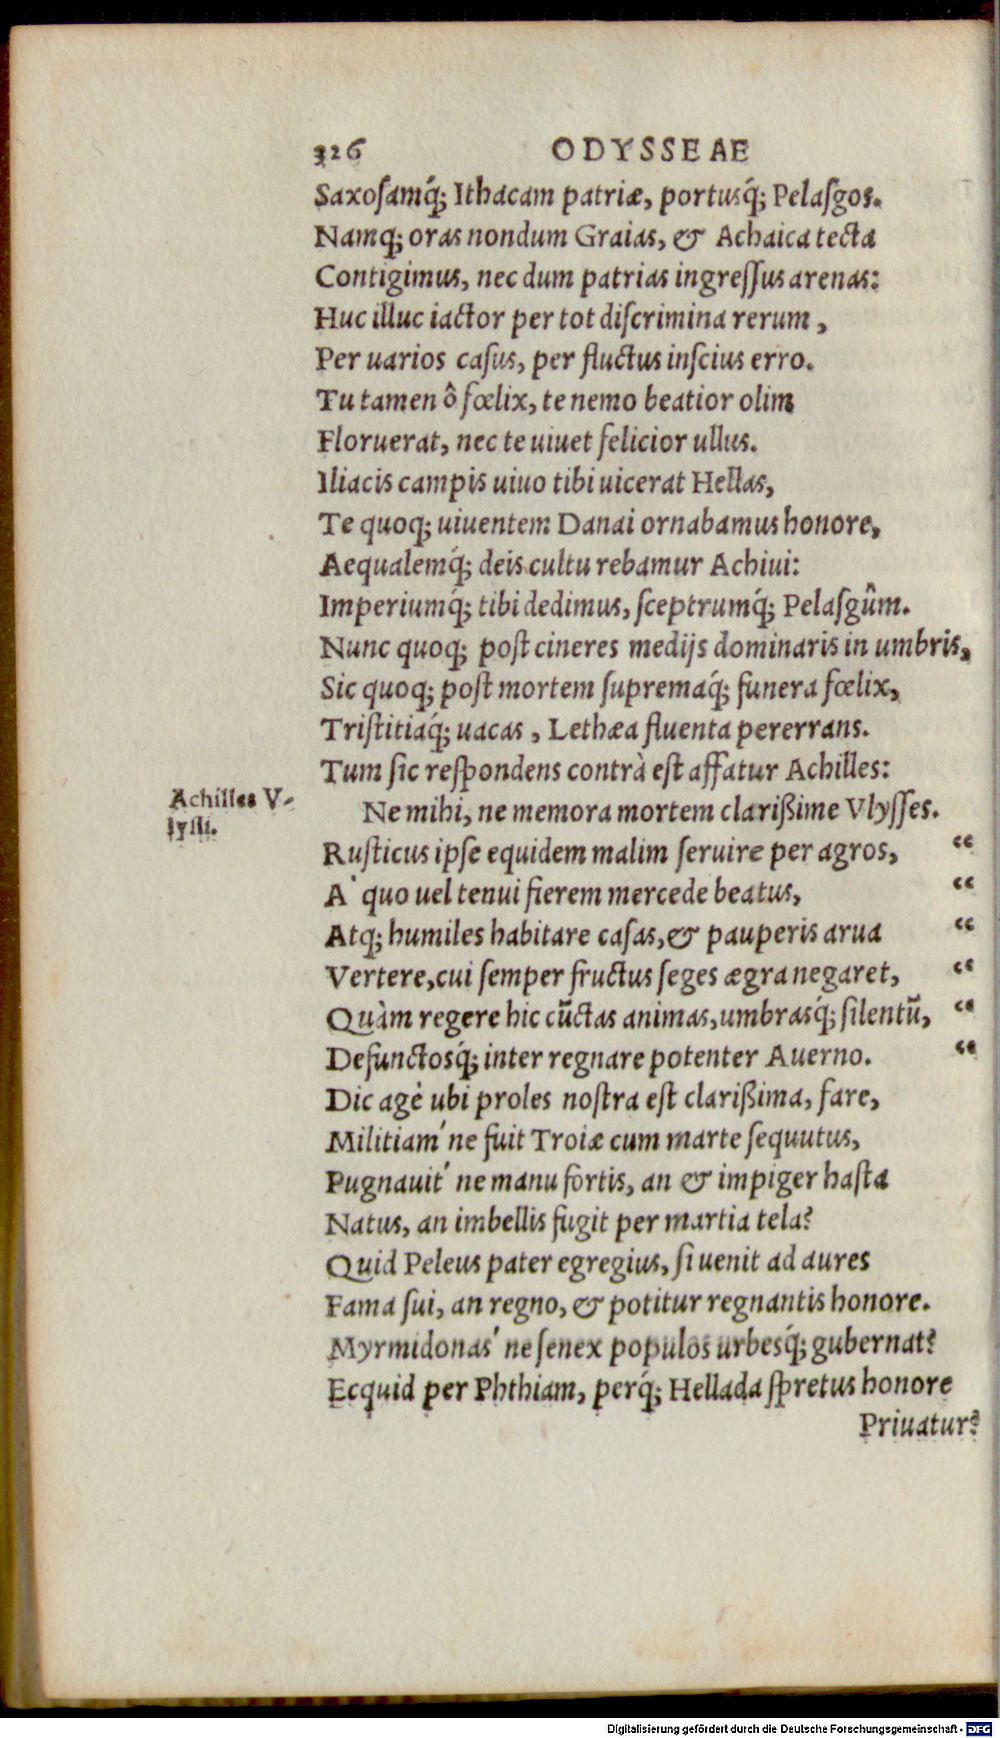 326 ODYSSEAE
Saxosamq́; Ithacam patriæ, portusq́; Pelasgos.
Namq; oras nondum Graias, & Achaica tecta
Contigimus, nec dum patrias ingressus arenas:
Huc illuc iactor per tot discrimina rerum,
Per uarios casus, per fluctus inscius erro.
Tu tamen ô fœlix, te nemo beatior olim
Floruerat, nec te uiuet felicior ullus.
Iliacis campis uiuo tibi uicerat Hellas,
Te quoq; uiuentem Danai ornabamus honore,
Aequalemq́; deis cultu rebamur Achiui:
Imperiumq́; tibi dedimus, sceptrumq́; Pelasgûm.
Nunc quoq; post cineres medijs dominaris in umbris,
Sic quoq; post mortem supremaq́; funera fœlix,
Tristitiaq́; uacas, Lethæa fluenta pererrans.
Tum sic respondens contrà est affatur Achilles:
Achilles V-
lyssi.
Ne mihi, ne memora mortem clarißime Vlysses.
Rusticus ipse equidem malim seruire per agros, “
A' quo uel tenui fierem mercede beatus, “
Atq; humiles habitare casas, & pauperis arua “
Vertere, cui semper fructus seges ægra negaret, “
Quàm regere hic cūctas animas, umbrasq́; silentū, “
Defunctosq́; inter regnare potenter Auerno. “
Dic agè ubi proles nostra est clarißima, fare,
Militiam' ne fuit Troiæ cum marte sequutus,
Pugnauit' ne manu fortis, an & impiger hasta
Natus, an imbellis fugit per martia tela?
Quid Peleus pater egregius, si uenit ad aures
Fama sui, an regno, & potitur regnantis honore.
Myrmidonas' ne senex populos urbesq́; gubernat?
Ecquid per Phthiam, perq́; Hellada spretus honore
Priuatur?
Digitalisierung gefördert durch die Deutsche Forschungsgemeinschaft - DFG